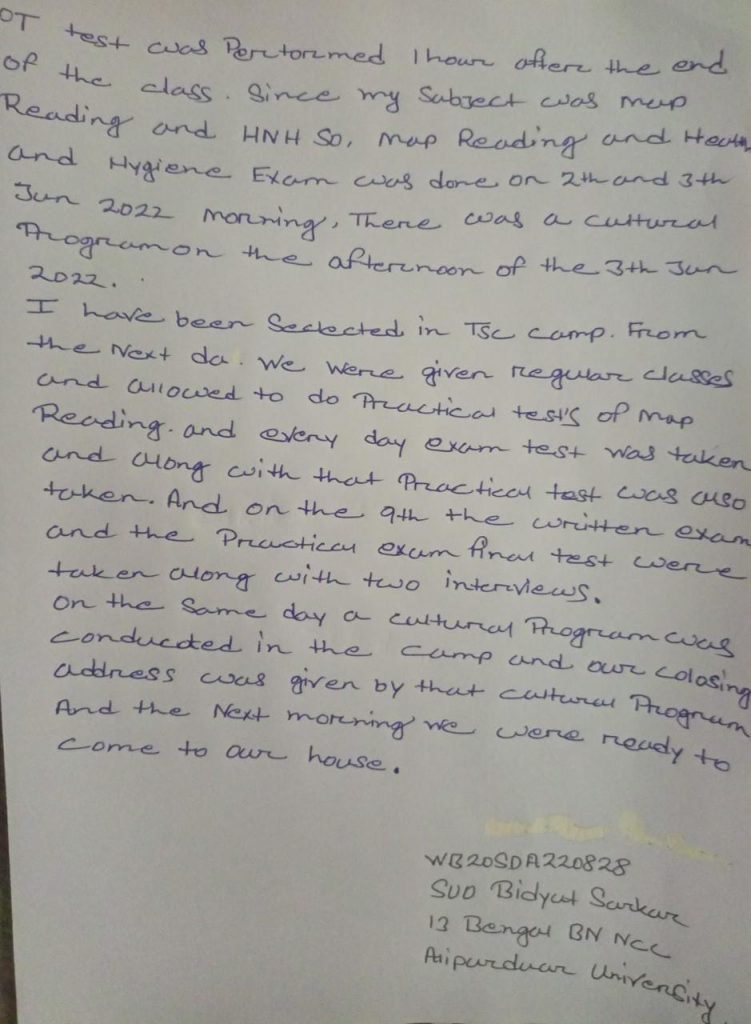 OT test was Pertormed 1 hour after the end
of the class. Since my Subject was map
Reading and HNH So, Map Reading and Heath
and Hygiene Exam was done on 2th and 3th
Jun 2022 morning, There was a cultural
Program on the afternoon of the 3th Jun
2022.
I have been Seclected in TSC camp. From
the Next da. We were given regular classes
and allowed to do Practical test's of map
Reading. and every day exam test was taken
and along with that Practical test was also
taken. And on the 9th the written exam
and the Practical exam final test were
taken along with two interviews.
On the Same day a cultural Program was
conducted in the camp and our colosing
address was given by that cultural Program
And the Next morning we were ready to
come to our house.
WB20SDA220828
SUO Bidyut Sarkar
13 Bengal BN NCC
Alipurduar University